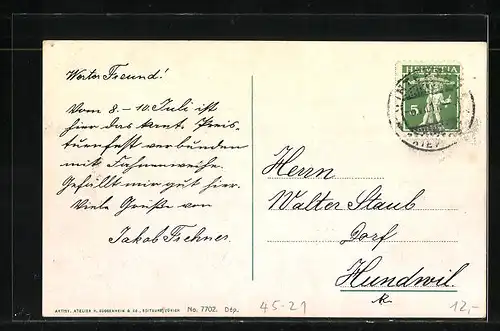 Werter Freund!
Vom 8.-10. Juli ist
hier das kant. Preis-
turnfest verbunden
mit Fahnenweihe.
Gefällt mir gut hier.
Viele Grüße von
Jakob
HELVETIA
5
Herrn
Walter Staub
Dorf
Hundwil.
ARTIST. ATELIER H. GUGGENHEIM & CO., EDITEURS, ZÜRICH No. 7702. Dép.
45-21
12,-